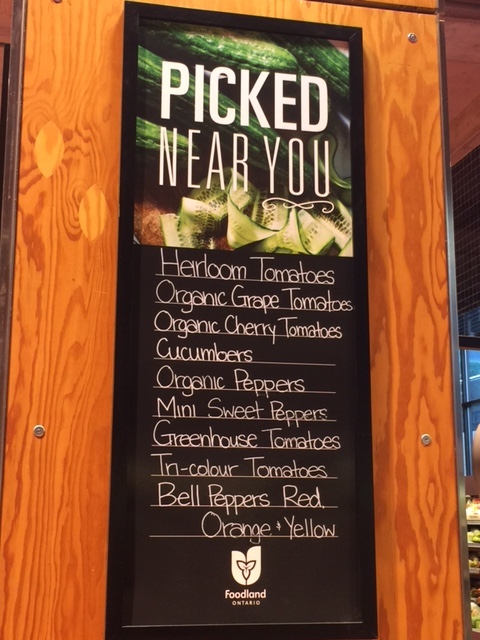 PICKED
NEAR YOU
Heirloom Tomatoes
Organic Grape Tomatoes
Organic Cherry Tomatoes
Cucumbers
Organic Peppers
Mini Sweet Peppers
Greenhouse Tomatoes
Tri-colour Tomatoes
Bell Peppers Red,
Orange & Yellow
Foodland
ONTARIO